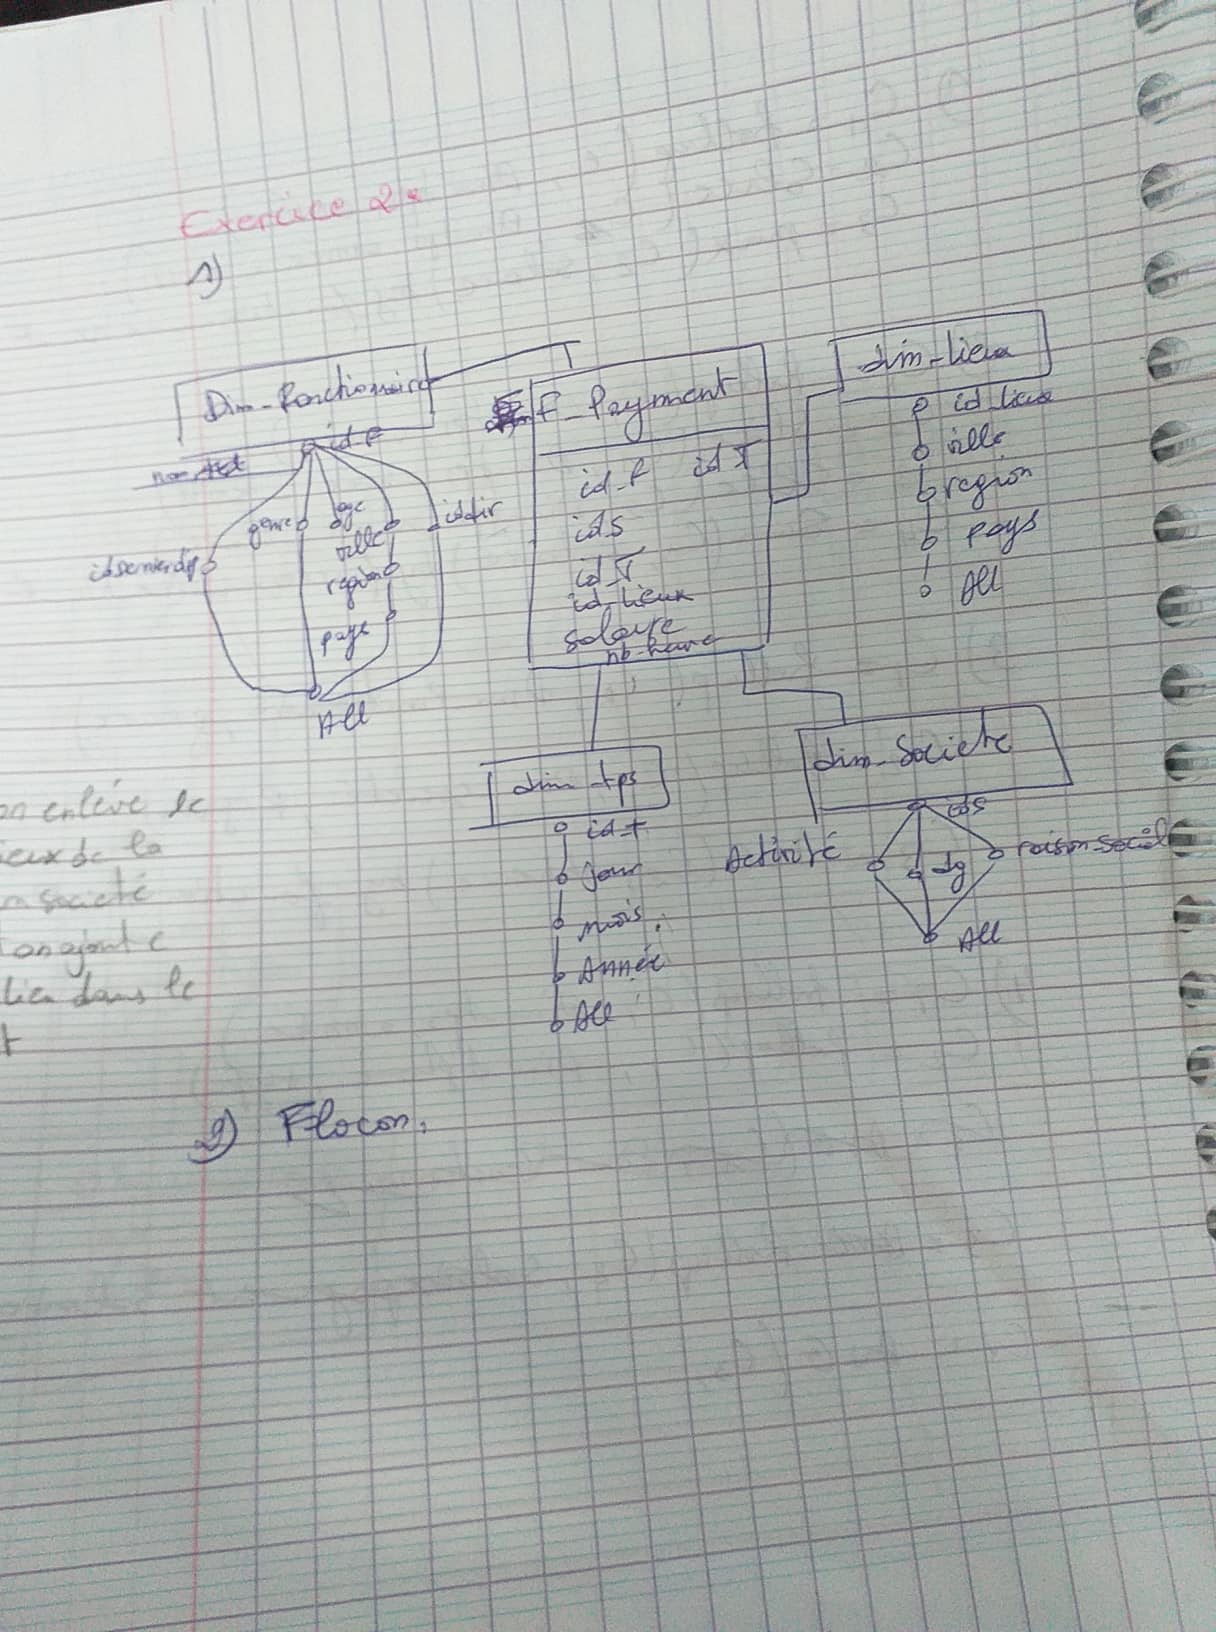 Exercice 2:
1)
Dim-fonctionnaire
id-f
genre
age
ville
region
pays
id dir
All
F-Payment
id-f id T
id S
id-T
id-lieux
salaire
nb-heure
dim-lieu
id-lieux
ville
region
pays
All
dim-tps
id-t
jour
mois
Année
All
dim-Societe
id S
Activité
dg
raison-social
All
on enlève le
ieux de la
société
on ajoute
lieu dans le
t
2) Flocon.